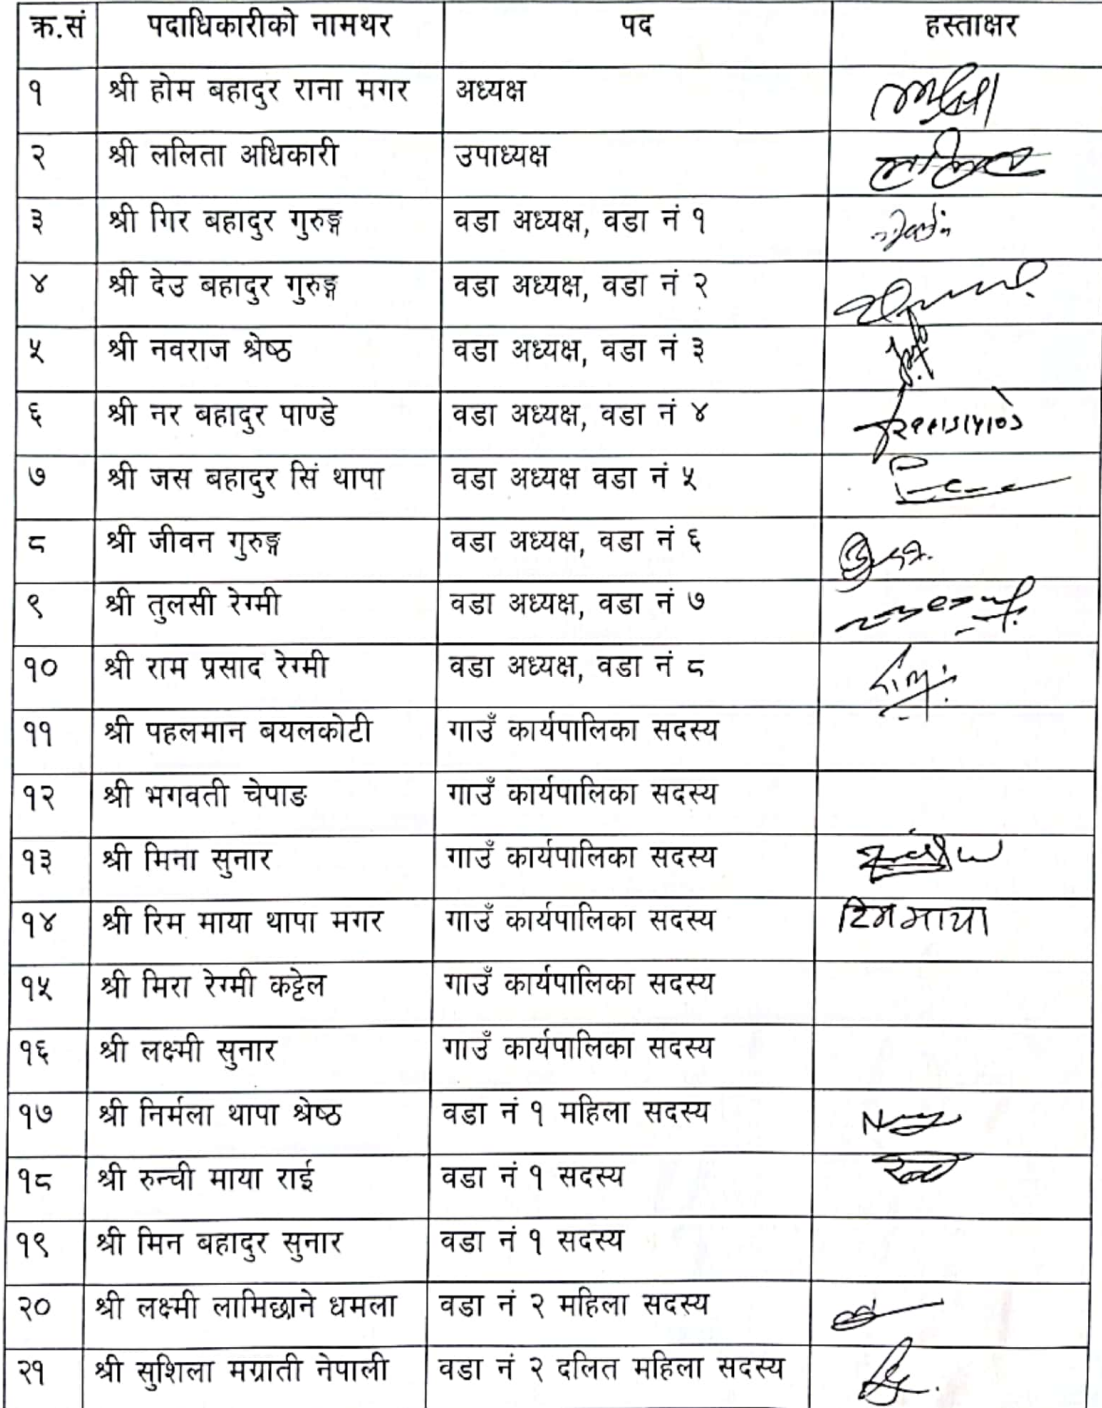 क्र.सं पदाधिकारीको नामथर पद हस्ताक्षर
१ श्री होम बहादुर राना मगर अध्यक्ष
२ श्री ललिता अधिकारी उपाध्यक्ष
३ श्री गिर बहादुर गुरुङ्ग वडा अध्यक्ष, वडा नं १
४ श्री देउ बहादुर गुरुङ्ग वडा अध्यक्ष, वडा नं २
५ श्री नवराज श्रेष्ठ वडा अध्यक्ष, वडा नं ३
६ श्री नर बहादुर पाण्डे वडा अध्यक्ष, वडा नं ४
७ श्री जस बहादुर सिं थापा वडा अध्यक्ष वडा नं ५
८ श्री जीवन गुरुङ्ग वडा अध्यक्ष, वडा नं ६
९ श्री तुलसी रेग्मी वडा अध्यक्ष, वडा नं ७
१० श्री राम प्रसाद रेग्मी वडा अध्यक्ष, वडा नं ८
११ श्री पहलमान बयलकोटी गाउँ कार्यपालिका सदस्य
१२ श्री भगवती चेपाङ गाउँ कार्यपालिका सदस्य
१३ श्री मिना सुनार गाउँ कार्यपालिका सदस्य
१४ श्री रिम माया थापा मगर गाउँ कार्यपालिका सदस्य रिममाया
१५ श्री मिरा रेग्मी कट्टेल गाउँ कार्यपालिका सदस्य
१६ श्री लक्ष्मी सुनार गाउँ कार्यपालिका सदस्य
१७ श्री निर्मला थापा श्रेष्ठ वडा नं १ महिला सदस्य
१८ श्री रुन्ची माया राई वडा नं १ सदस्य
१९ श्री मिन बहादुर सुनार वडा नं १ सदस्य
२० श्री लक्ष्मी लामिछाने धमला वडा नं २ महिला सदस्य
२१ श्री सुशिला मग्राती नेपाली वडा नं २ दलित महिला सदस्य